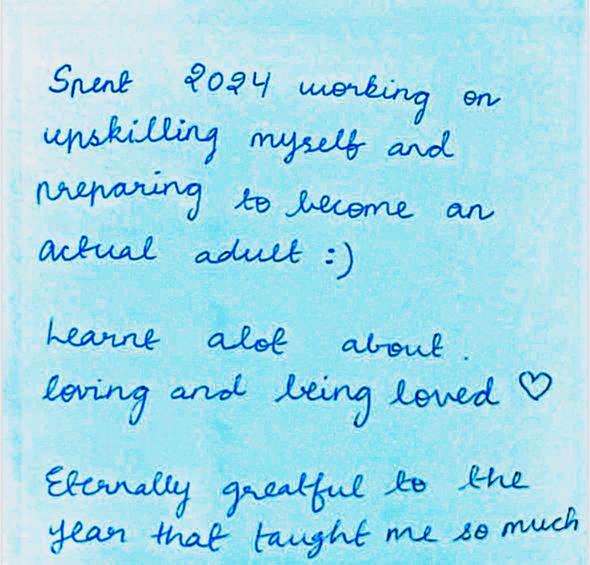 Spent 2024 working on
upskilling myself and
preparing to become an
actual adult :)
Learnt alot about.
loving and being loved ♡
Eternally greatful to the
year that taught me so much